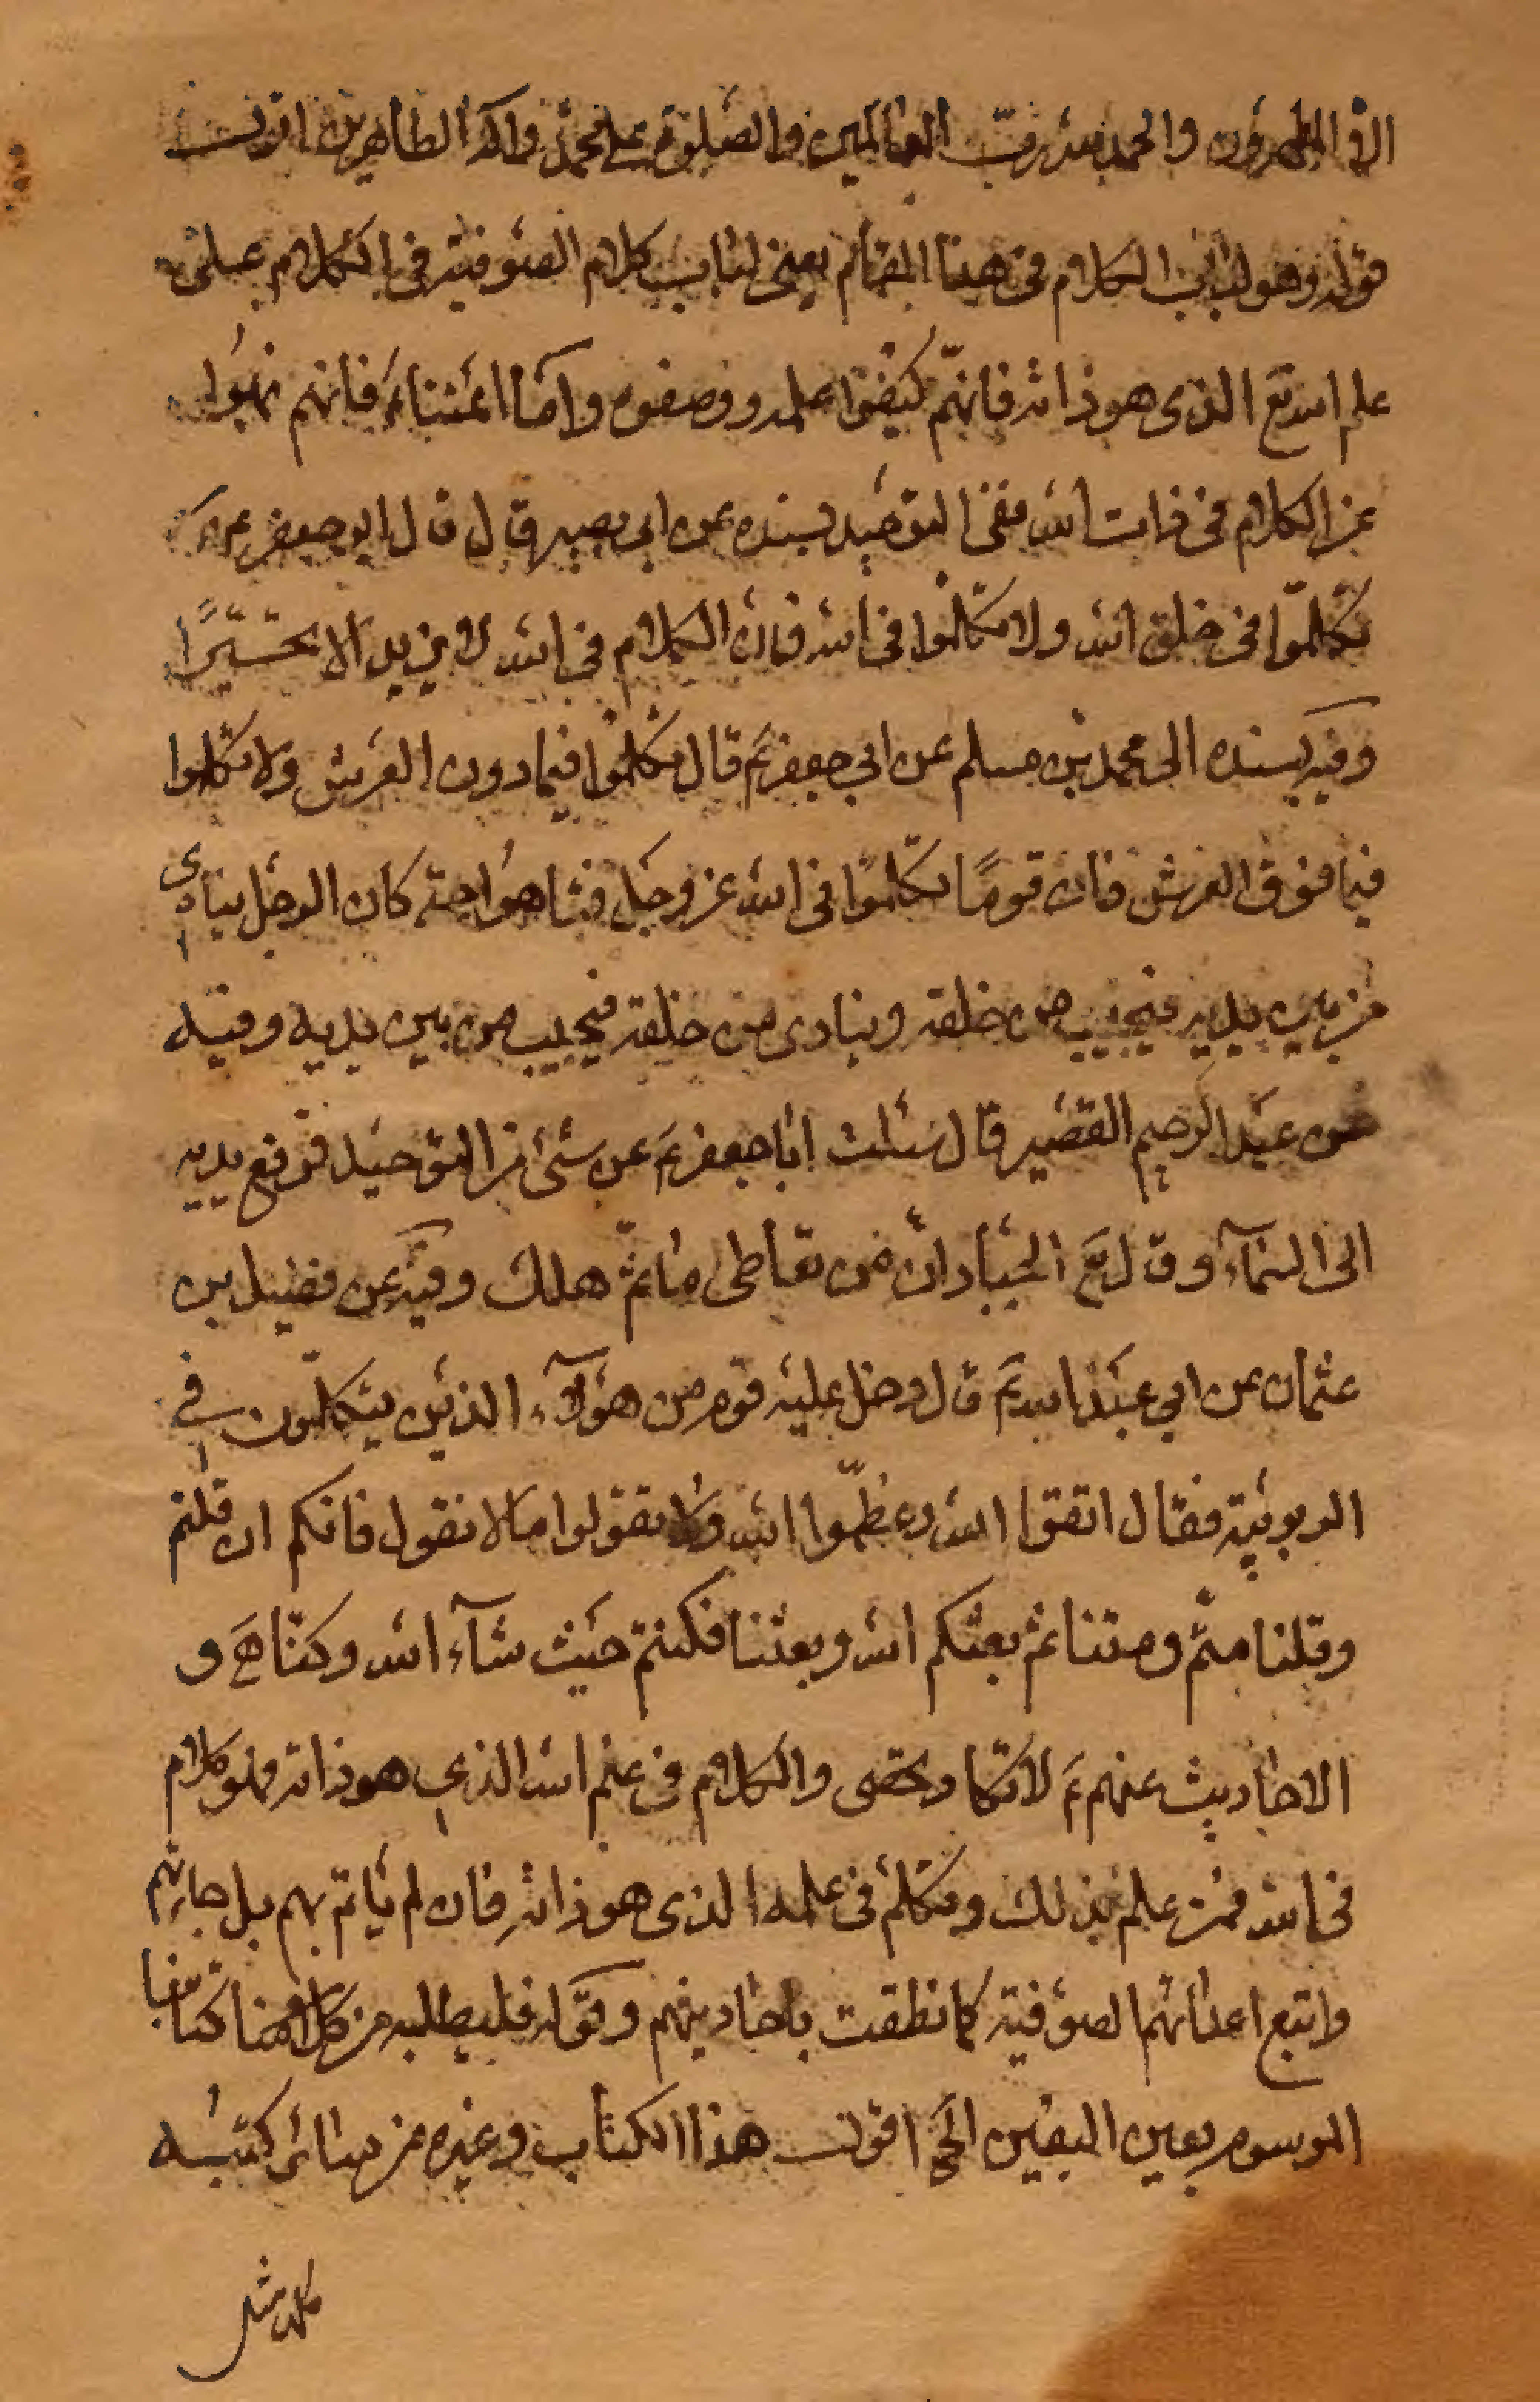 الا المطهرون والحمد لله رب العالمين والصلوة على محمد وآله الطاهرين اقول
قوله وهو لباب الكلام في هذا المقام يعني لباب كلام الصوفية في الكلام على
علم الله تع الذي هو ذاته فانهم كيفوا علمه ووصفوه واما ائمتناءَ فانهم نهوا
عن الكلام في ذات الله ففي التوحيد بسنده عن ابي بصير قال قال ابو جعفر عَ
تكلّموا في خلق الله ولا تكلموا في الله فان الكلام في الله لا يزيد الا تحيّرًا
وفيه بسنده الى محمد بن مسلم عن ابي جعفر عَ قال تكلموا فيما دون العرش ولا تكلموا
فيما فوق العرش فان قومًا تكلموا في الله عز وجل فتاهوا حتى كان الرجل ينادى
من بين يديه فيجيب من خلفه وينادى من خلفه فيجيب من بين يديه وفيه
عن عبد الرحيم القصير قال سئلت ابا جعفر عَ عن شئ من التوحيد فرفع يديه
الى السماء وقال تع الجبار ان من تعاطى ما ثمّ هلك وفيه عن فضيل بن
عثمان عن ابي عبد الله عَ قال دخل عليه قوم من هؤلاء الذين يتكلمون في
الربوبية فقال اتقوا الله وعظّموا الله ولا تقولوا ما لا نقول فانكم ان قلتم
وقلنا متّم ومتنا ثم بعثكم الله وبعثنا فكنتم حيث شآء الله وكنّا هَ و
الاحاديث عنهم عَ لا تكاد تحصى والكلام في علم الله الذي هو ذاته فهو كلام
في الله فمن علم بذلك وتكلم في علمه الذي هو ذاته فان لم ياتم بهم بل جانبهم
واتبع اعدائهم الصوفية كما نطقت باحاديثهم وقوله فليطلبه من كلامنا كتابنا
الموسوم بعين اليقين الخ اقول هذا الكتاب وغيره من سائر كتبه